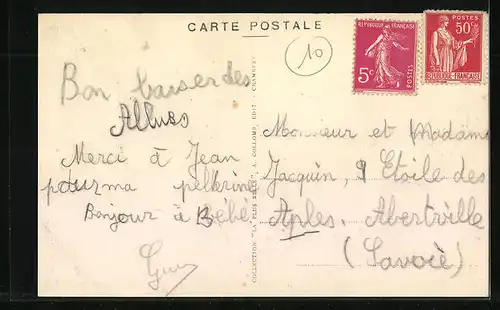 CARTE POSTALE
10
REPUBLIQUE FRANÇAISE
5c
POSTES
POSTES
50c
REPUBLIQUE-FRANÇAISE
Bon baiser des
Allues
Merci à Jean
pour ma pellerine
Bonjour à Bébé
Guy
COLLECTION "LA PLUS BELLE", A. COLLOMB, EDIT. CHAMBERY
Monsieur et Madame
Jacquin, 9 Etoile des
Aples. Abertville
(Savoie)